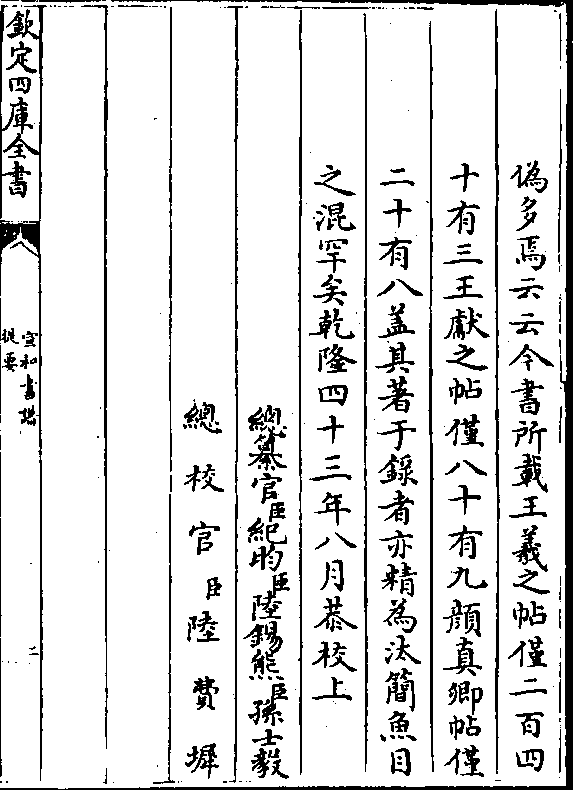 偽多焉云云今書所載王羲之帖僅二百四
十有三王獻之帖僅八十有九顔真卿帖僅
二十有八蓋其著于錄者亦精為汰簡魚目
之混罕矣乾隆四十三年八月恭校上
總纂官臣紀昀臣陸錫熊臣孫士毅
總校官臣陸費墀
欽定四庫全書
宣和書譜
提要
二